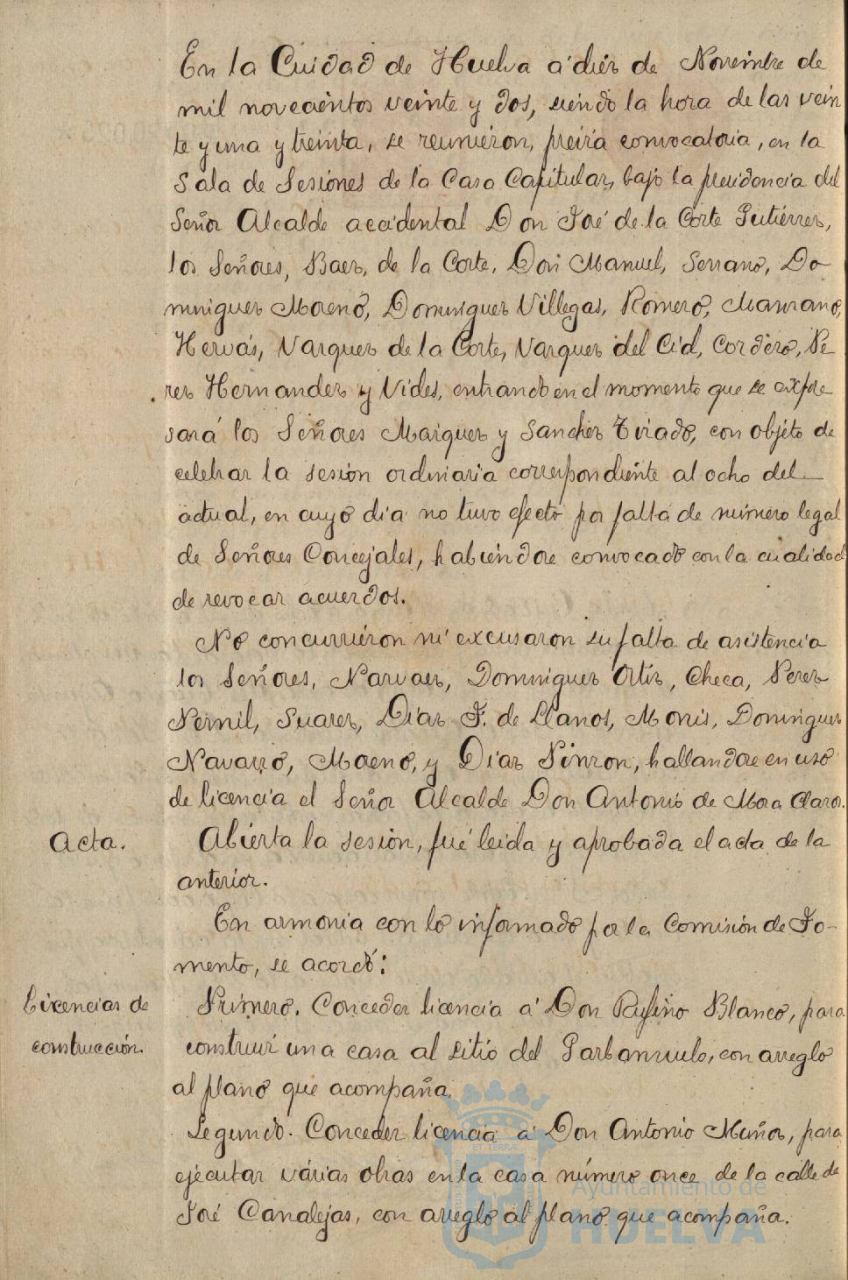 En la Cuidad de Huelva á diez de Noviembre de
mil novecientos veinte y dos, siendo la hora de las vein
te y una y treinta, se reunieron, previa convocatoria, en la
Sala de Sesiones de la Casa Capitular, bajo la presidencia del
Señor Alcalde accidental Don José de la Corte Gutiérrez,
los Señores, Baez, de la Corte, Don Manuel, Serrano, Do
minguez Moreno, Dominguez Villegas, Romero, Manzano,
Hervás, Vazquez de la Corte, Vazquez del Cid, Cordero, Pe
rez Hernandez y Vides, entrando en el momento que se expre
sará los Señores Marquez y Sanchez Tirado, con objeto de
celebrar la sesión ordinaria correspondiente al ocho del
actual, en cuyo dia no tuvo efecto por falta de número legal
de Señores Concejales, habiéndose convocado con la cualidad
de revocar acuerdos.
No concurrieron ni excusaron su falta de asistencia
los Señores, Narvaez, Dominguez Ortiz, Checa, Perez
Pernil, Suarez, Diaz F. de Llanos, Monis, Dominguez
Navarro, Moreno, y Diaz Pinzon, hallandose en uso
de licencia el Señor Alcalde Don Antonio de Mora Claros.
Acta.
Abierta la sesión, fué leida y aprobada el acta de la
anterior.
En armonia con lo informado por la Comisión de Fo-
mento, se acordó:
Licencias de
construcción.
Primero. Conceder licencia á Don Rufino Blanco, para
construir una casa al sitio del Garbanzuelo, con arreglo
al plano que acompaña.
Segundo. Conceder licencia á Don Antonio Muñoz, para
ejecutar várias obras en la casa número once de la calle de
José Canalejas, con arreglo al plano que acompaña.
Ayuntamiento de
HUELVA